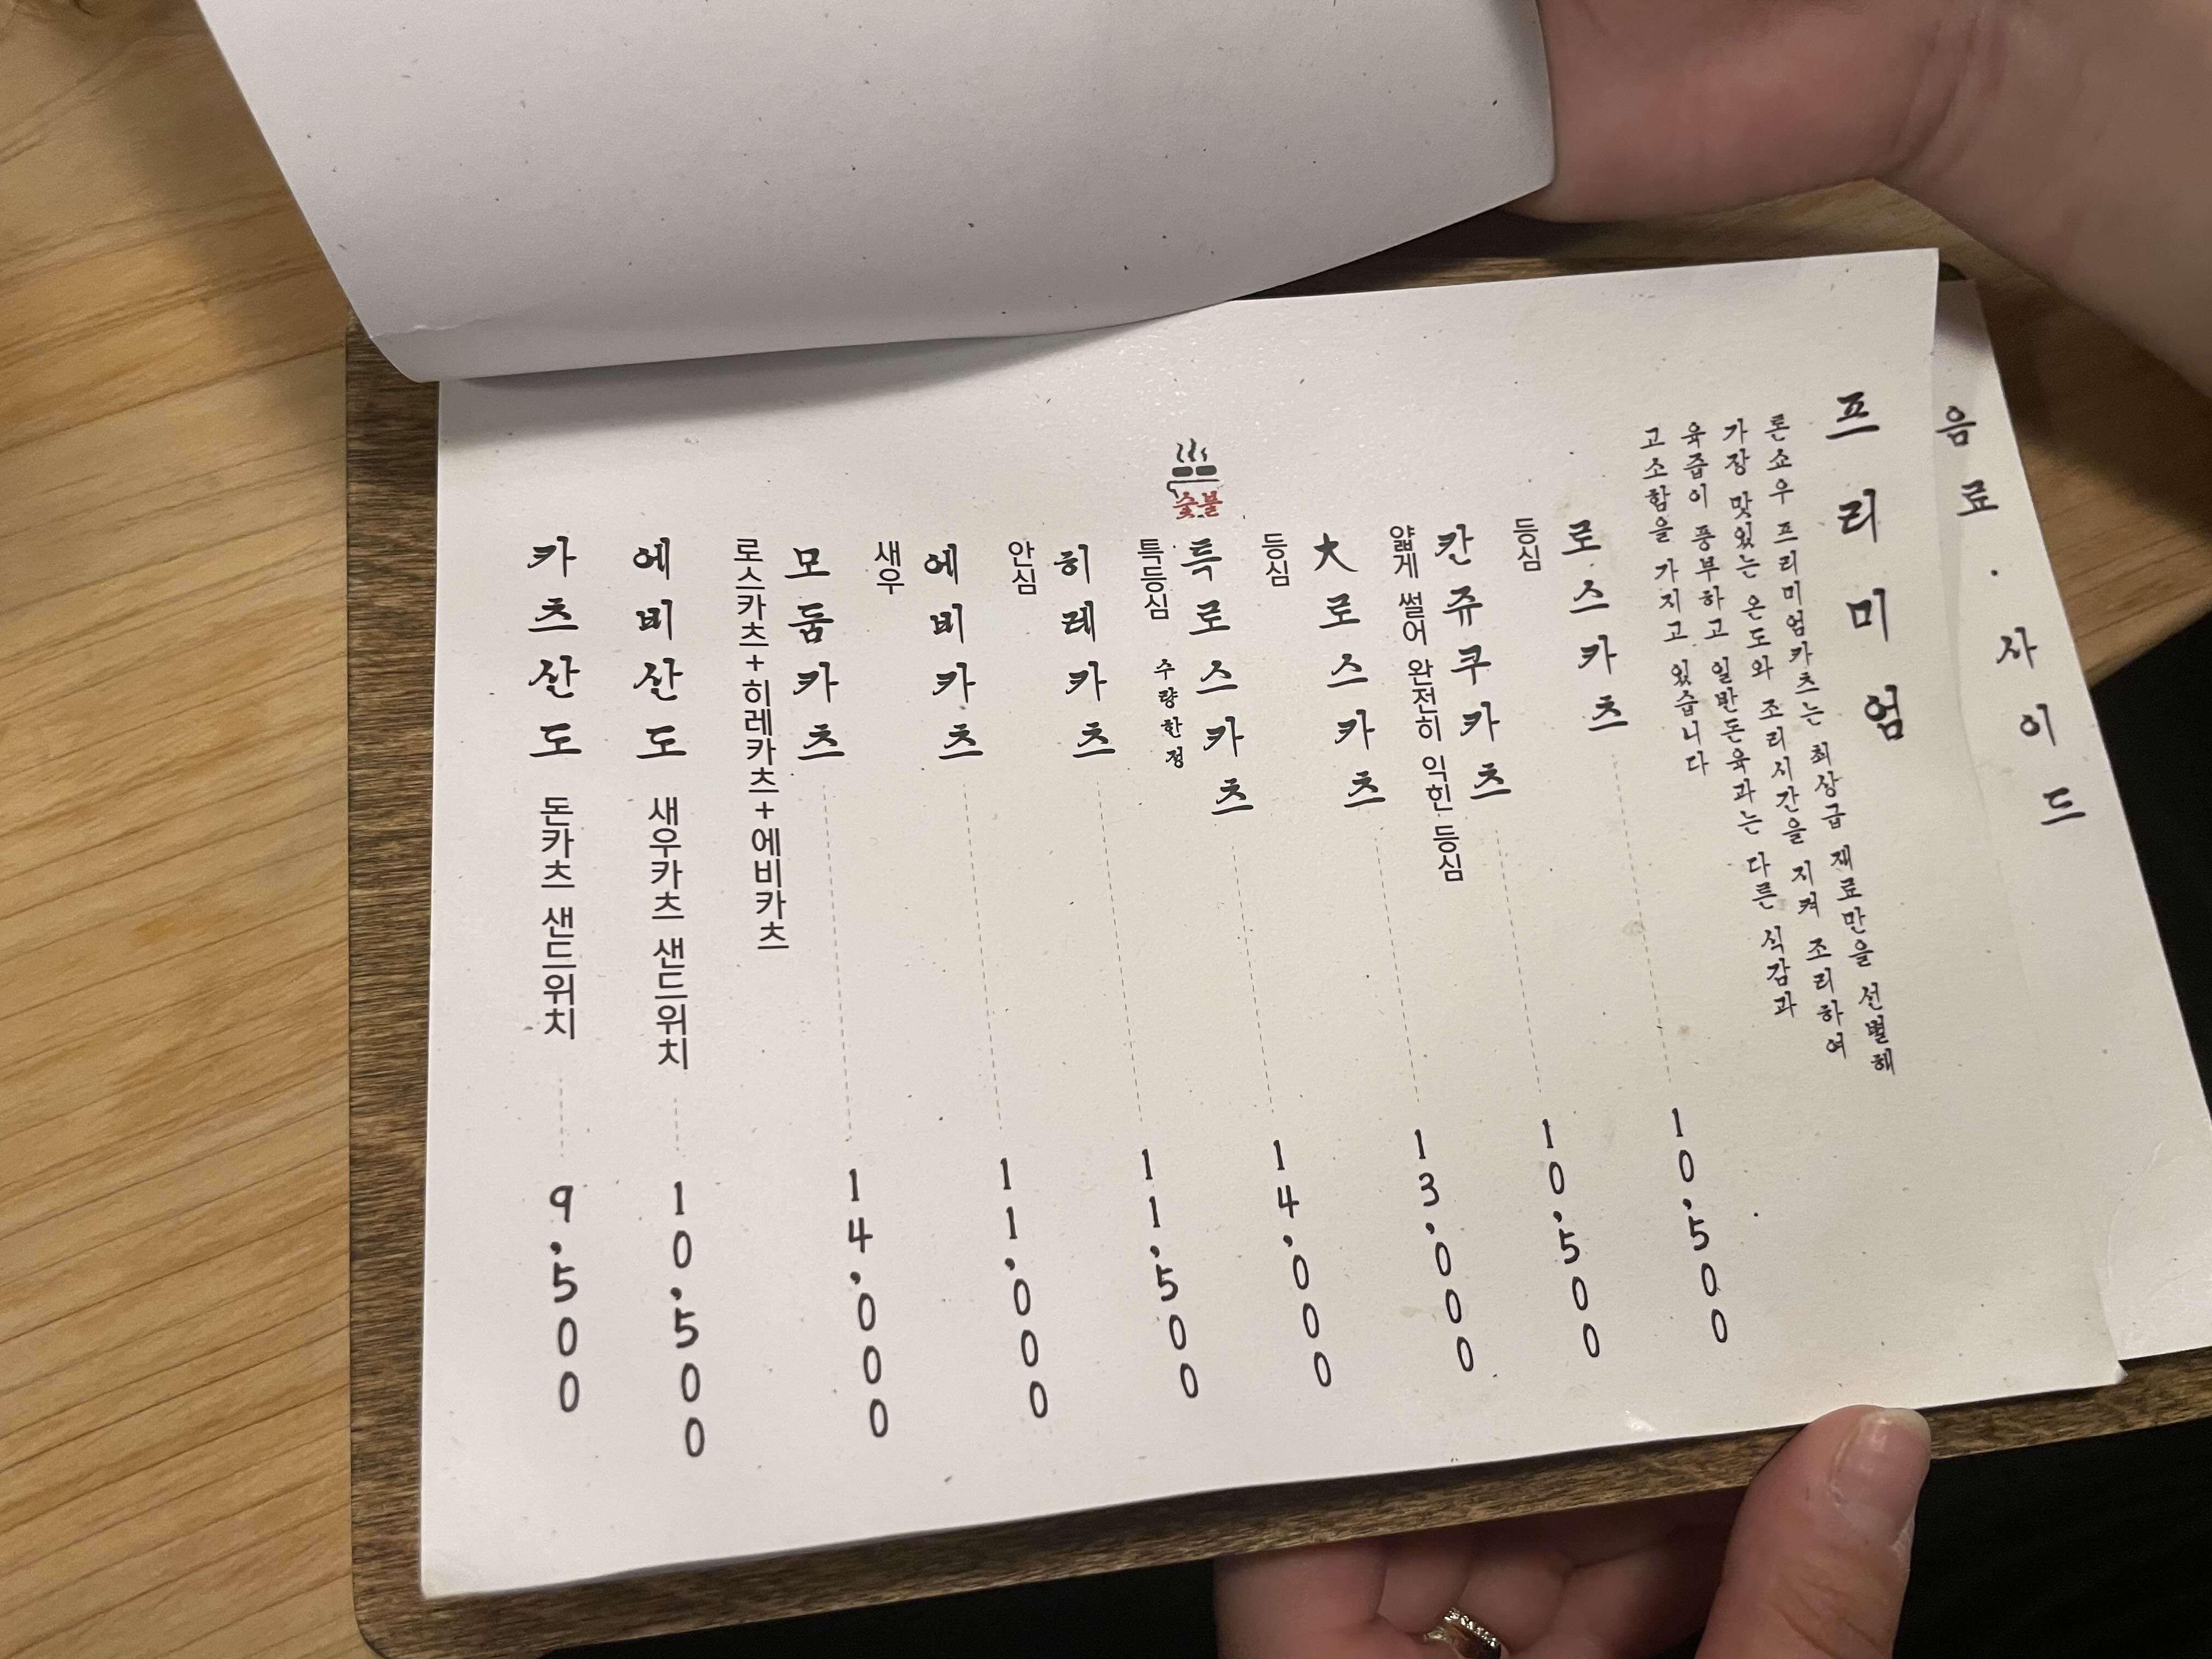 음료 · 사이드
프리미엄
론쇼우 프리미엄카츠는 최상급 재료만을 선별해
가장 맛있는 온도와 조리시간을 지켜 조리하여
육즙이 풍부하고 일반돈육과는 다른 식감과
고소함을 가지고 있습니다
로스카츠 10,500
등심
칸쥬쿠카츠 10,500
얇게 썰어 완전히 익힌 등심
大로스카츠 13,000
등심
숯불
특로스카츠 14,000
특등심 수량한정
히레카츠 11,500
안심
에비카츠 11,000
새우
모둠카츠 14,000
로스카츠+히레카츠+에비카츠
에비산도 새우카츠 샌드위치 10,500
카츠산도 돈카츠 샌드위치 9,500